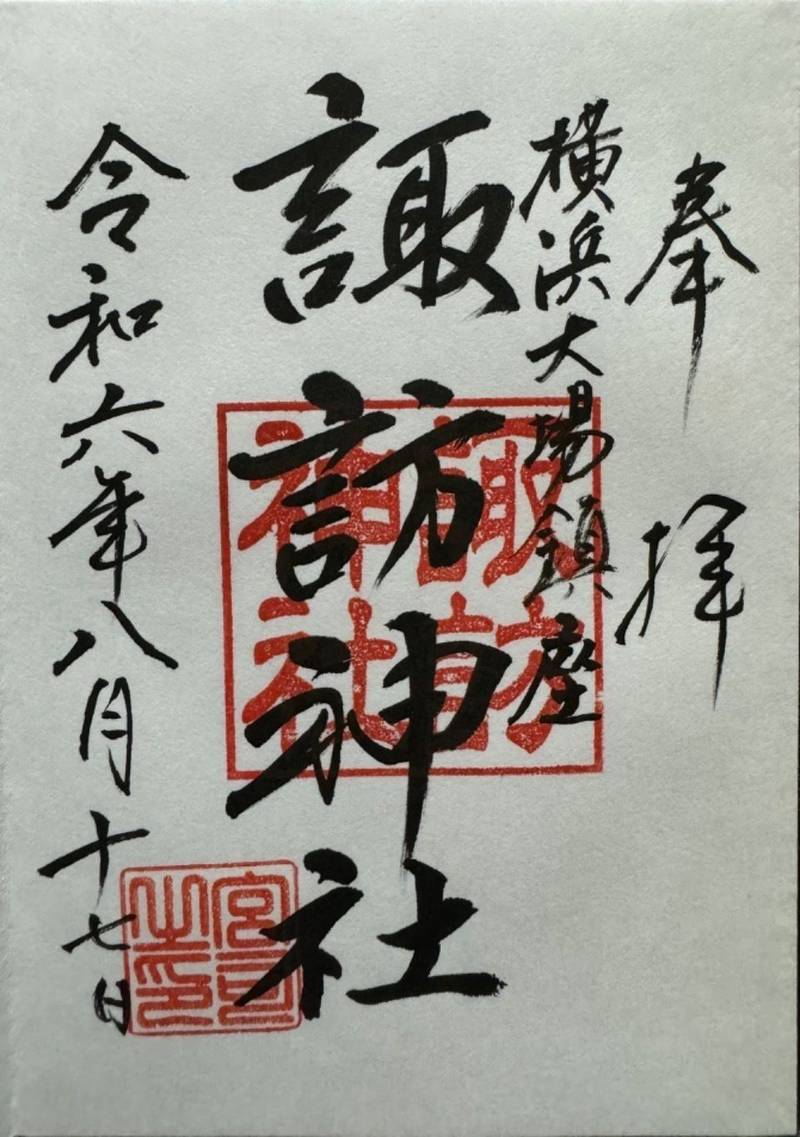 奉拝
横浜大場鎮座
諏訪神社
令和六年八月十七日
諏訪神社
宮司之印